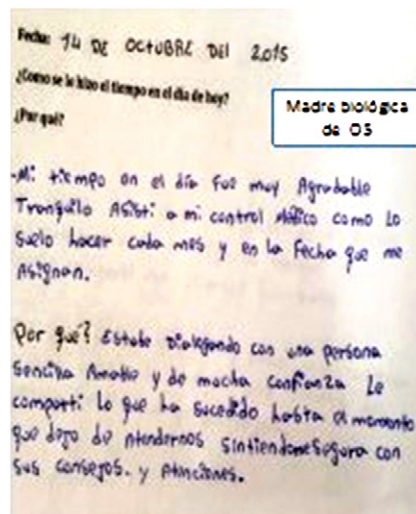 Fecha: 14 DE OCTUBRE DEL 2.015
¿Como se le hizo el tiempo en el dia de hoy?
¿Por qué?
Madre biológica
de O3
-Mi tiempo en el día fue muy Agradable
Tranquilo Asisti a mi control médico como lo
suelo hacer cada mes y en la fecha que me
Asignan.
Por qué? Estube Dialogando con una persona
Sencilla Amable y de mucha confianza Le
comparti lo que ha sucedido hasta el momento
que dejo de atendernos sintiendome segura con
sus consejos. y Atenciones.